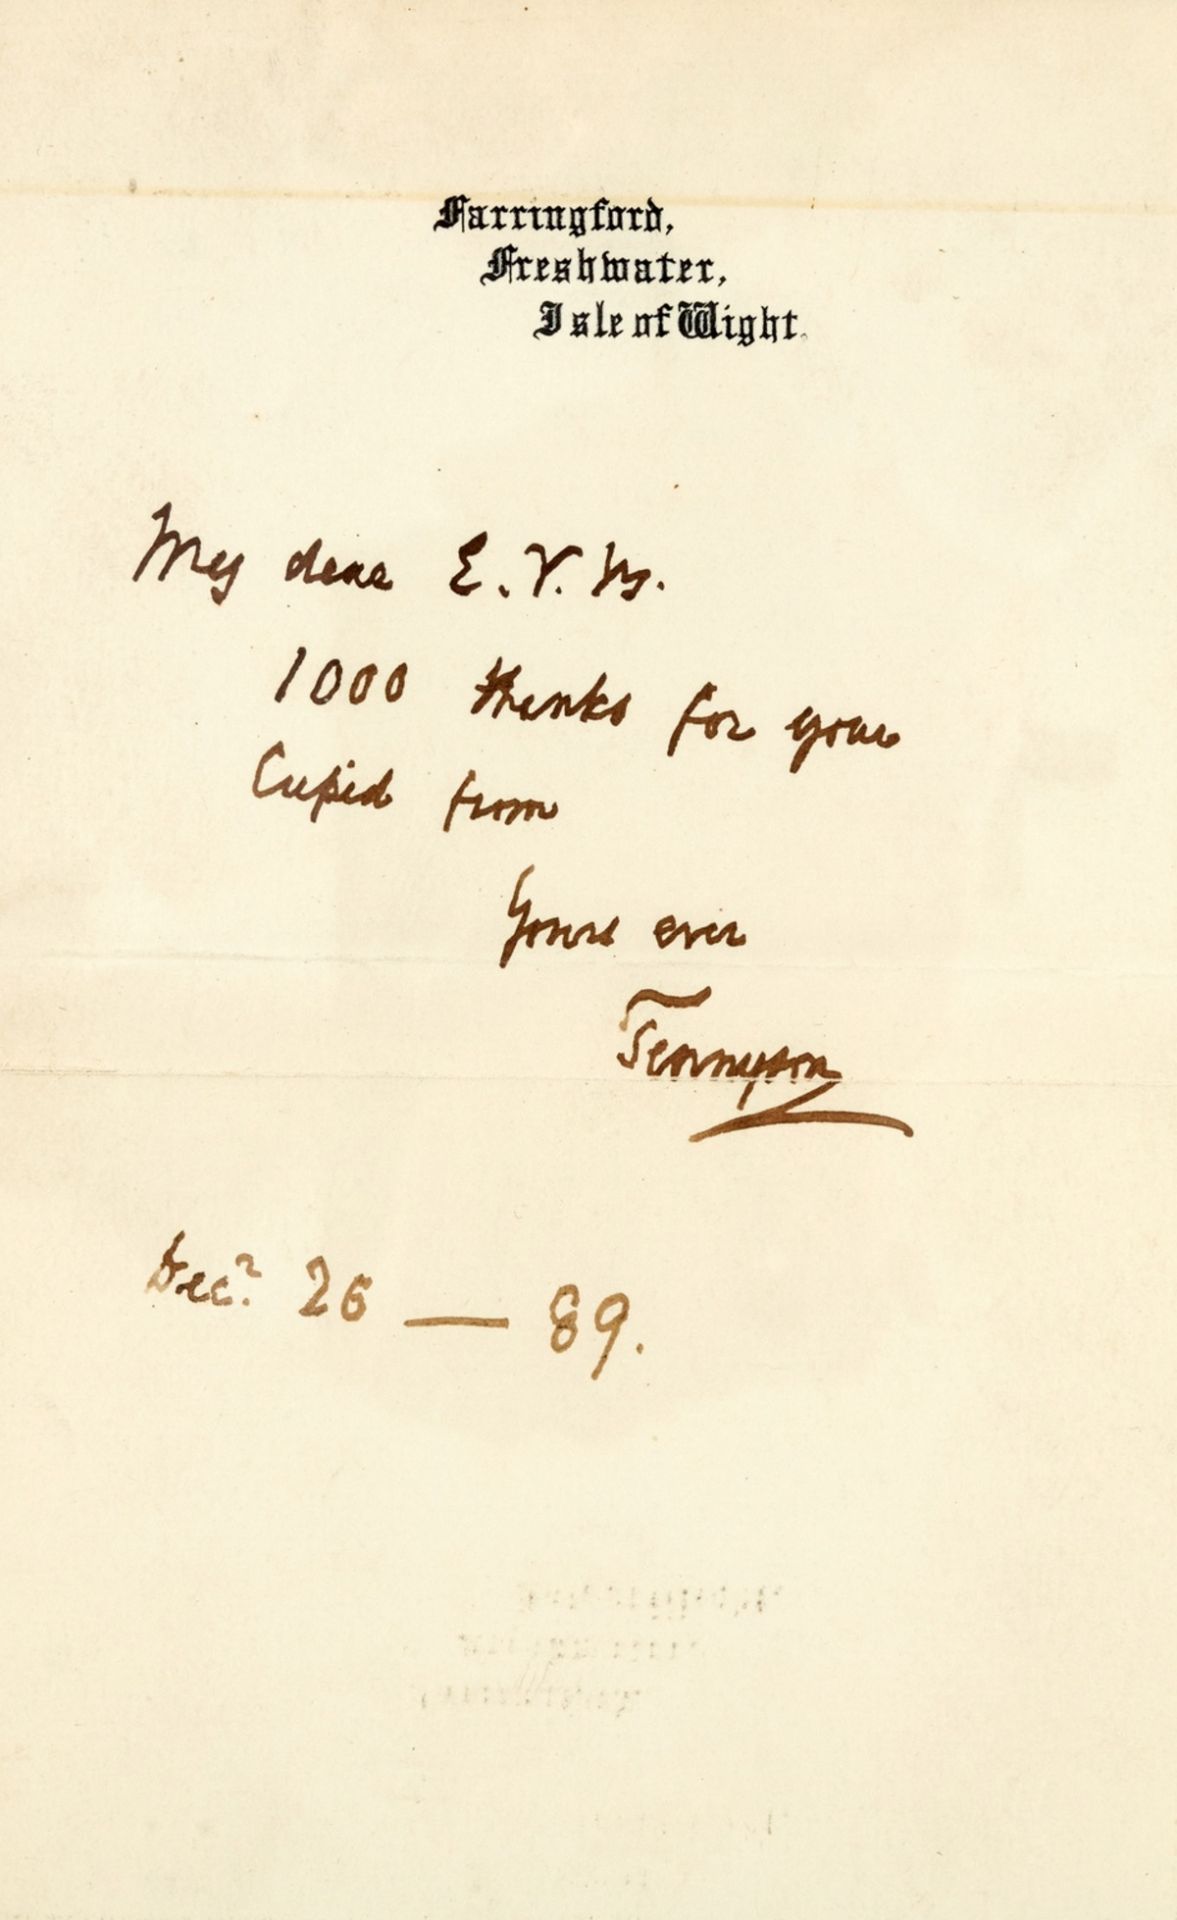 Farringford,
Freshwater,
Isle of Wight.
My dear E. V. M.
1000 thanks for your
Cupid from
Yours ever
Tennyson
Decr. 26 — 89.